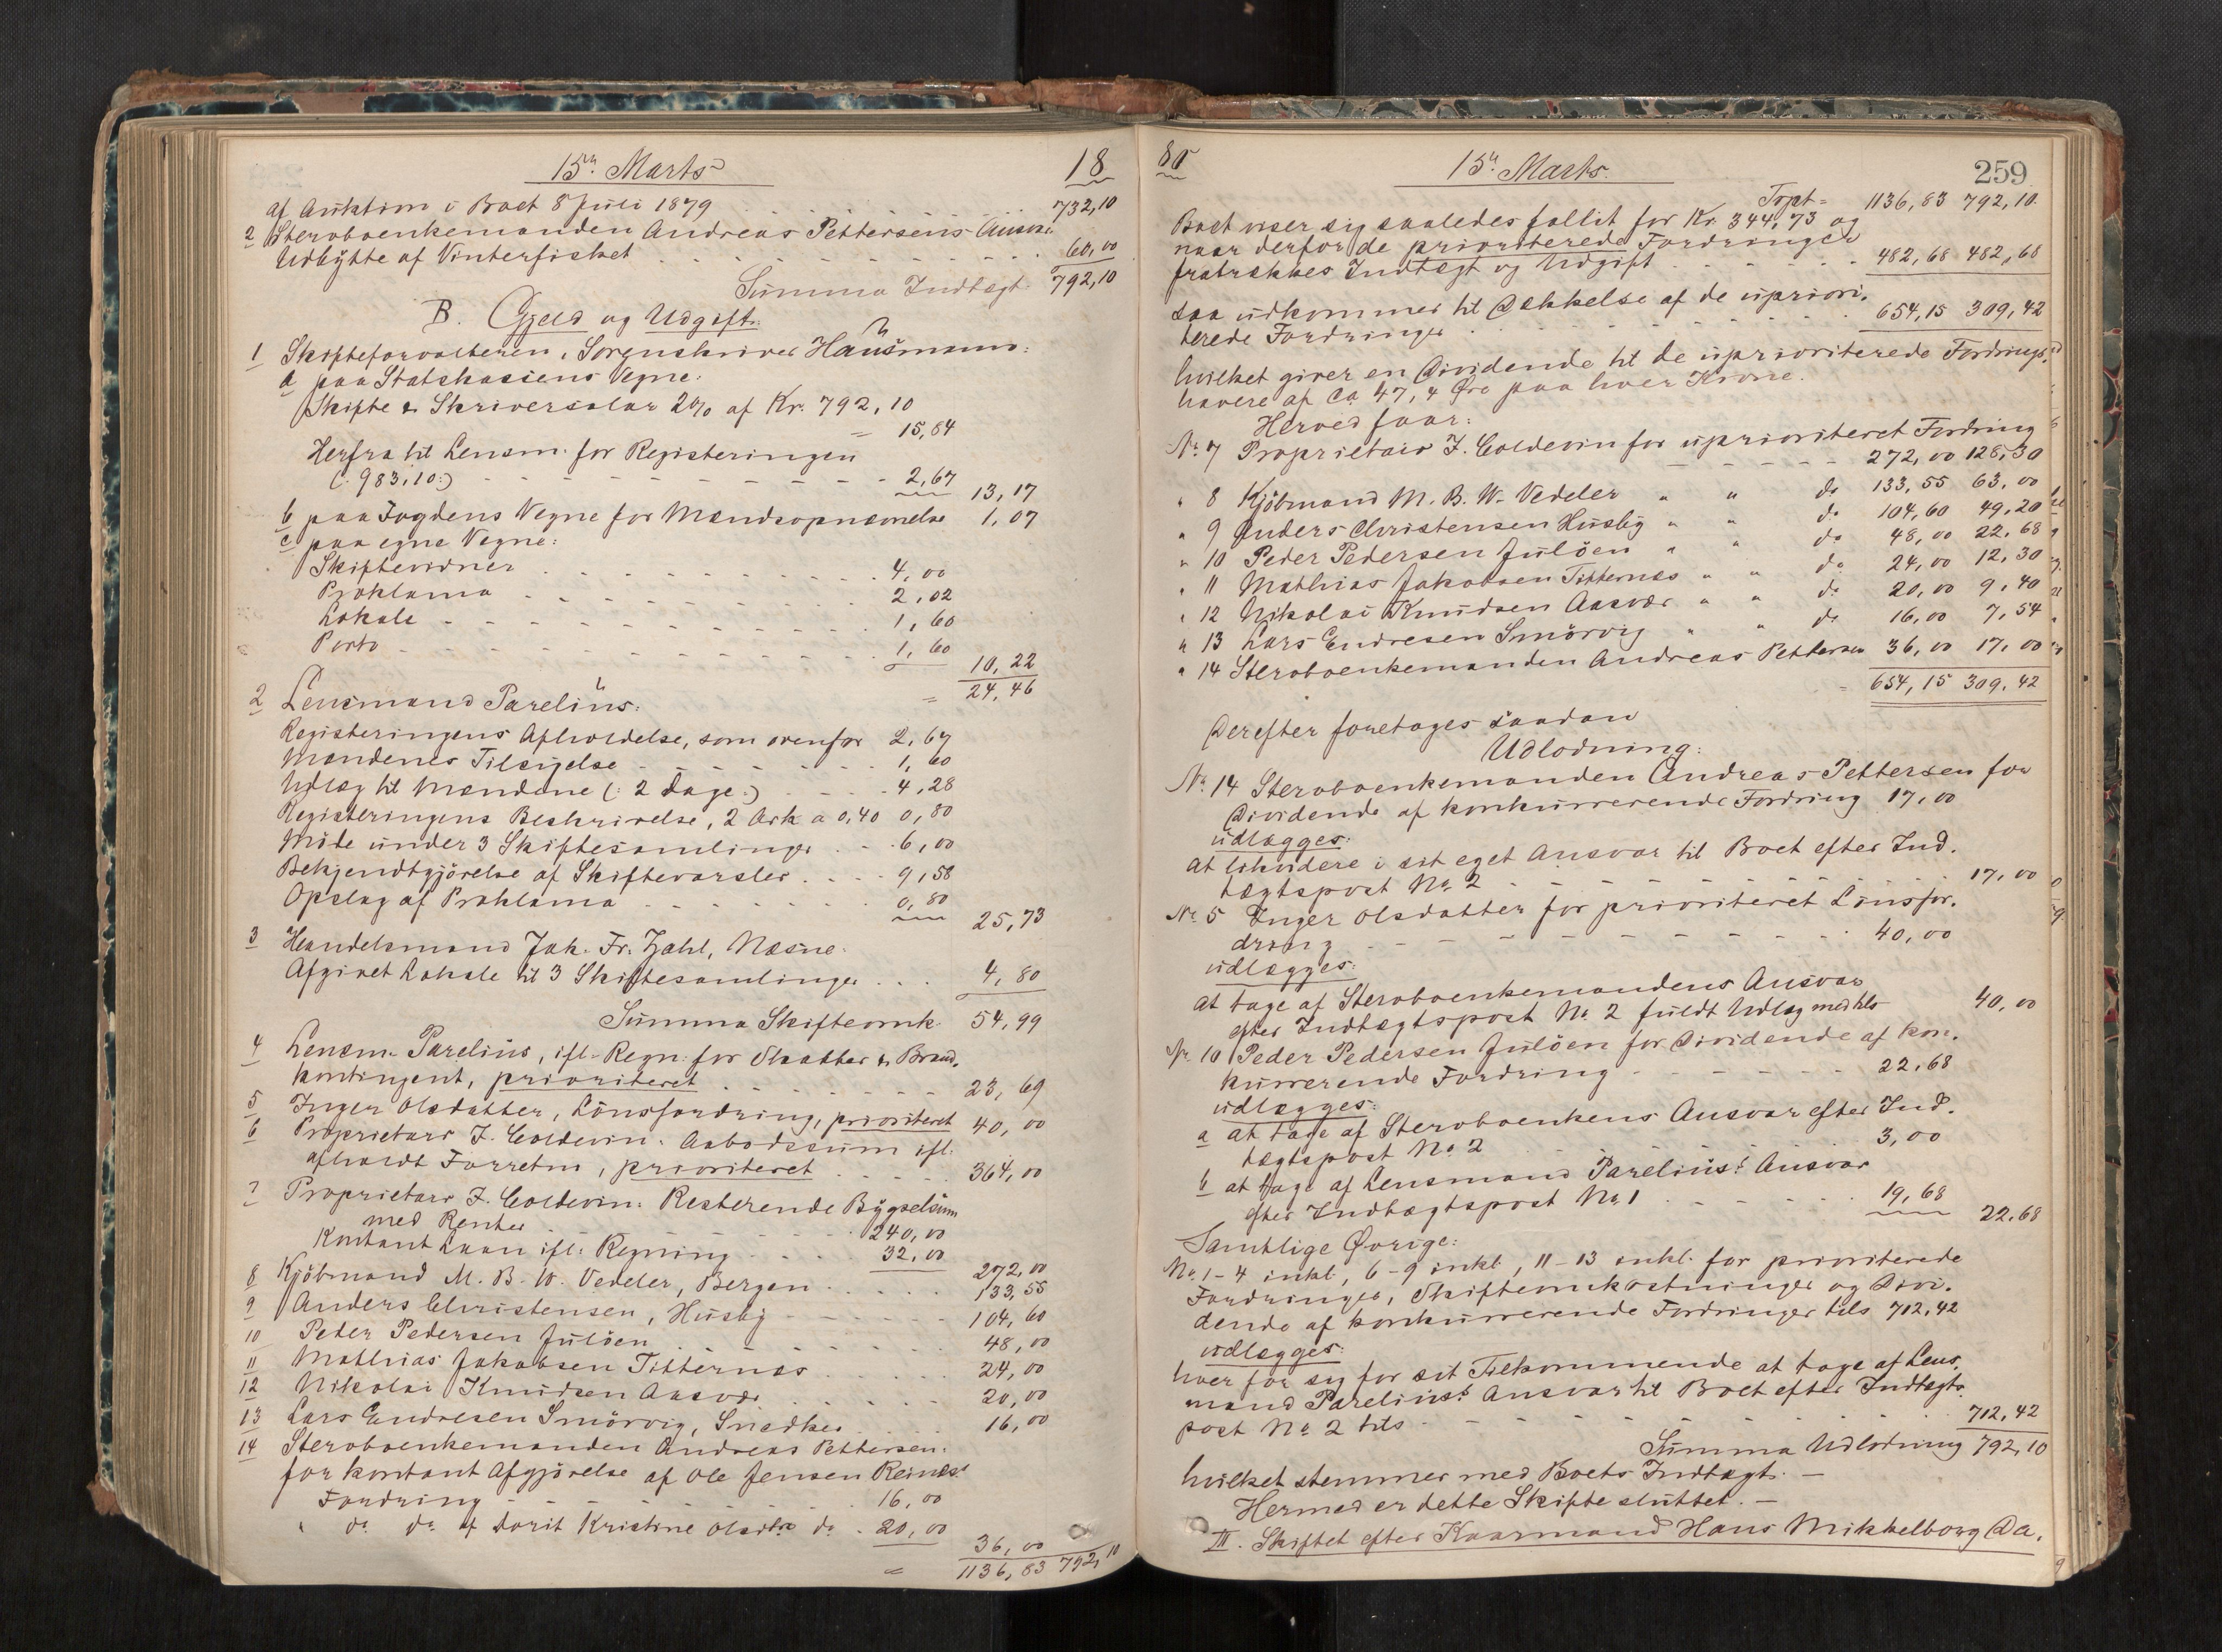 15de Marts
18
af Auktion i Boet 8 Juli 1879 . . . 732,10
2 Sterboenkemanden Andreas Pettersens Ansvar
Udbytte af Vinterfisket . . . 60,00
Summa Indtægt 792,10
B. Gjeld og Udgift.
1 Skifteforvalteren, Sorenskriver Hausmann:
a paa Statskassens Vegne:
Skifte & Skriversalær 2% af Kr. 792,10
= 15,84
Herfra til Lensm. for Registeringen
(: 983,10:) - - - 2,67
13,17
b paa Fogdens Vegne for Mændsopnævnelse 1,07
c paa egne Vegne:
Skiftevidner . . . 4,00
Proklama . . . 2,02
Lokale . . . 1,60
Porto . . . 1,60
10,22
= 24,46
2 Lensmand Parelius:
Registeringens Afholdelse, som ovenfor 2,67
Mændenes Tilsigelse - - - 1,60
Udlæg til Mændene (: 2 Dage:) - - - 4,28
Registeringens Beskrivelse, 2 Ark a 0,40 0,80
Møde under 3 Skiftesamlinger . . . 6,00
Bekjendtgjørelse af Skiftevarsler . . . 9,58
Opslag af Proklama . . . 0,80
25,73
3 Handelsmand Jak. Fr. Zahl, Næsne:
Afgivet Lokale til 3 Skiftesamlinger . . . 4,80
Summa Skifteomk. 54,99
4 Lensm. Parelius, ifl. Regn. for Skatter & Brand-
kontingent, prioriteret . . . 23,69
5 Inger Olsdatter, Lønsfordring, prioriteret 40,00
6 Proprietær J. Coldevin: Aabodssum ifl.
afholdt Forretn, prioriteret . . . 364,00
7 Proprietær J. Coldevin: Resterende Bygselsum
med Renter . . . 240,00
Kontant Laan ifl. Regning . . . 32,00
272,00
8 Kjøbmand M. B. W. Vedeler, Bergen . . . 133,55
9 Anders Christensen, Husby - - - 104,60
10 Peder Pedersen Juløen . . . 48,00
11 Mathias Jakobsen Titternæs . . . 24,00
12 Nikolai Knudsen Aasvær . . . 20,00
13 Lars Endresen Smörvig, Snedker . . . 16,00
14 Sterboenkemanden Andreas Pettersen:
for kontant Afgjørelse af Ole Jensen Reinæs's
Fordring - - - 16,00
" do do af Dorit Kristine Olsdtr do . 20,00
36,00
= 1136,83 792,10
80
15de Marts.
259
Trpt = 1136,83 792,10
Boet viser sig saaledes fallit for Kr. 344,73 og
naar derfor de prioriterede Fordringer
fratrækkes Indtægt og Udgift . . . 482,68 482,68
saa udkommer til Dækkelse af de upriori-
terede Fordringer . . . 654,15 309,42
hvilket giver en Dividende til de uprioriterede Fordrings-
havere af ca 47,4 Øre paa hver Krone.
Herved faar:
No. 7 Proprietær J. Coldevin for uprioriteret Fordring
- - - 272,00 128,30
" 8 Kjøbmand M. B. W. Vedeler " " do 133,55 63,00
" 9 Anders Christensen Husby " " do 104,60 49,20
" 10 Peder Pedersen Juløen " " do 48,00 22,68
" 11 Mathias Jakobsen Titternæs " " do 24,00 12,30
" 12 Nikolai Knudsen Aasvær " " do 20,00 9,40
" 13 Lars Endresen Smörvig " " do 16,00 7,54
" 14 Sterboenkemanden Andreas Pettersen 36,00 17,00
= 654,15 309,42
Derefter foretages saadan
Udlodning:
No. 14 Sterboenkemanden Andreas Pettersen for
Dividende af konkurrerende Fordring 17,00
udlægges:
at likvidere i sit eget Ansvar til Boet efter Ind-
tægtspost No 2 - - - 17,00
No. 5 Inger Olsdatter for prioriteret Lønsfor-
dring - - - 40,00
udlægges:
at tage af Sterboenkemandens Ansvar
efter Indtægtspost No. 2 fuldt Udlæg med tils 40,00
No. 10 Peder Pedersen Juløen for Dividende af kon-
kurrerende Fordring - - - 22,68
udlægges:
a at tage af Sterboenkens Ansvar efter Ind-
tægtspost No 2 . . . 3,00
b at tage af Lensmand Parelius's Ansvar
efter Indtægtspost No. 1 - - - 19,68
22,68
Samtlige Øvrige:
No. 1-4 inkl., 6-9 inkl., 11-13 inkl. for prioriterede
Fordringer, Skifteomkostninger og Divi-
dende af konkurrerende Fordringer tils 712,42
udlægges:
hver for sig for sit Tilkommende at tage af Lens-
mand Parelius's Ansvar til Boet efter Indtægts-
post No 2 tils - - - 712,42
Summa Udlodning 792,10
hvilket stemmer med Boets Indtægt. —
Hermed er dette Skifte sluttet. —
III. Skiftet efter Kaarmand Hans Mikkelborg Da-